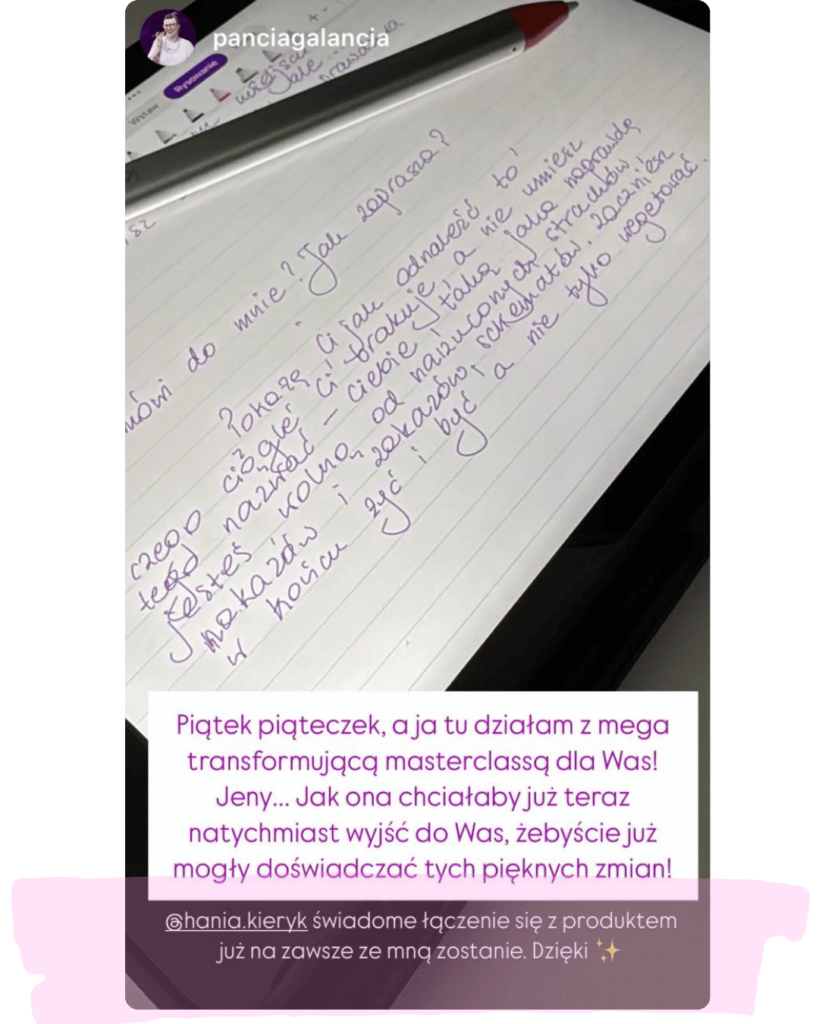 panciagalancia
Rysowanie
Wstaw
miejsca
Jale...
sz
mówi do mnie? Jak zaprasza?
Pokażę Ci jak odnaleźć to
czego ciągle Ci brakuje, a nie umiesz
tego nazwać - ciebie! taką jaką naprawdę
jesteś wolną od narzuconych strachów,
nakazów i zakazów, schematów. Zaczniesz
w końcu żyć i być a nie tylko wegetować.
Piątek piąteczek, a ja tu działam z mega
transformującą masterclassą dla Was!
Jeny... Jak ona chciałaby już teraz
natychmiast wyjść do Was, żebyście już
mogły doświadczać tych pięknych zmian!
@hania.kieryk świadome łączenie się z produktem
już na zawsze ze mną zostanie. Dzięki ✨